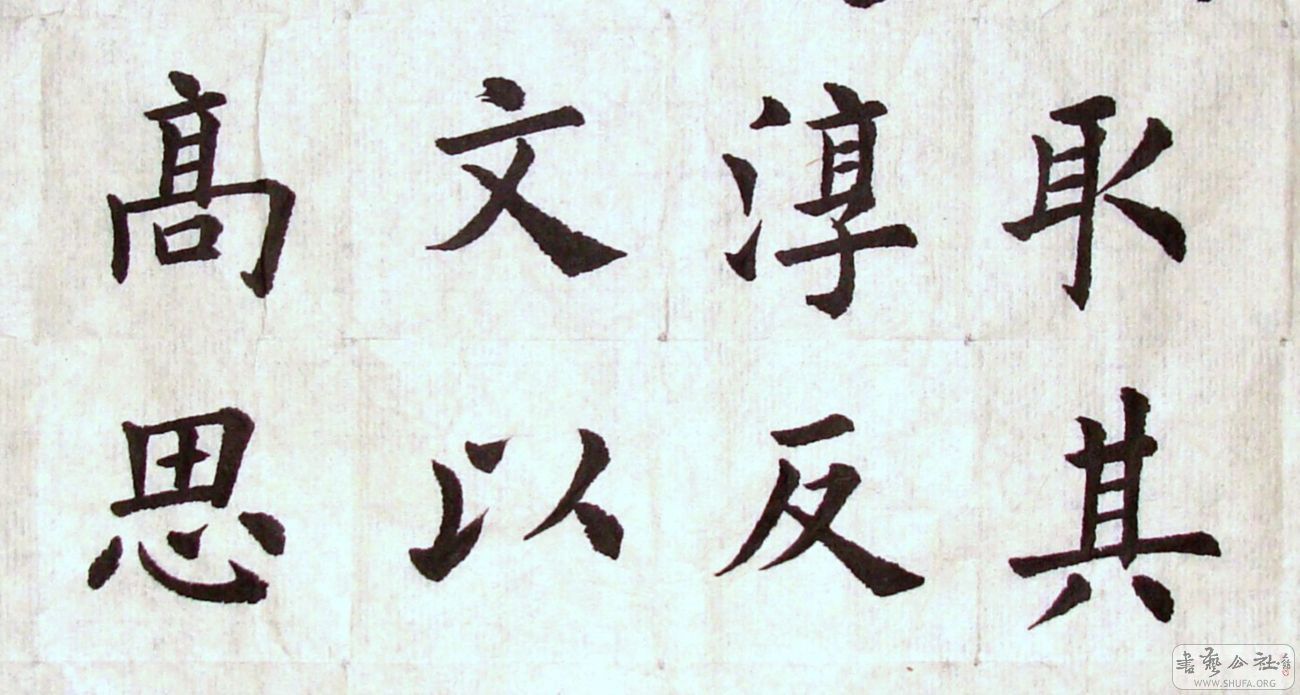 取其
淳反
文以
髙思
書藝公社
WWW.SHUFA.ORG